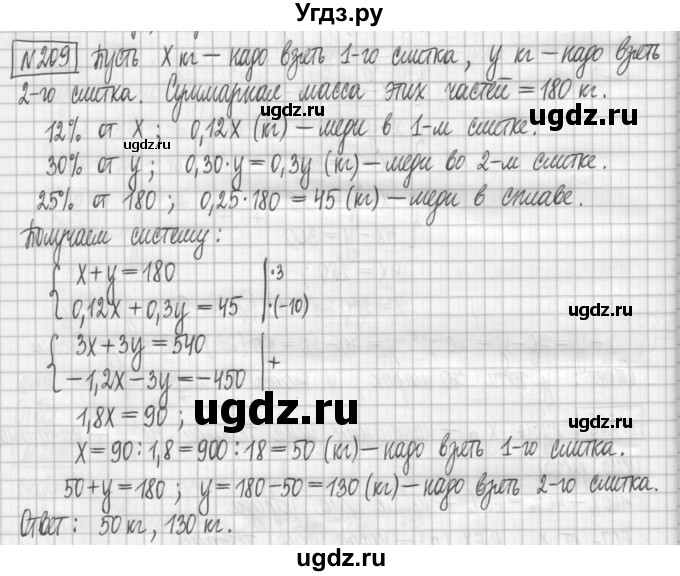 Угдз.ру
№209 Пусть x кг – надо взять 1-го слитка, y кг – надо взять
2-го слитка. Суммарная масса этих частей = 180 кг.
ugdz.ru ugdz.ru
12% от x; 0,12x (кг) – меди в 1-м слитке.
30% от y; 0,30·y = 0,3y (кг) – меди во 2-м слитке.
25% от 180; 0,25·180 = 45 (кг) – меди в сплаве.
ugdz.ru
Получаем систему:
{ x + y = 180 | ·3
0,12x + 0,3y = 45 | ·(-10)
ugdz.ru
{ 3x + 3y = 540
−1,2x − 3y = −450 | +
1,8x = 90;
ugdz.ru
ugdz.ru
x = 90 : 1,8 = 900 : 18 = 50 (кг) – надо взять 1-го слитка.
50 + y = 180; y = 180 − 50 = 130 (кг) – надо взять 2-го слитка.
Ответ: 50 кг, 130 кг.
ugdz.ru
ugdz.ru